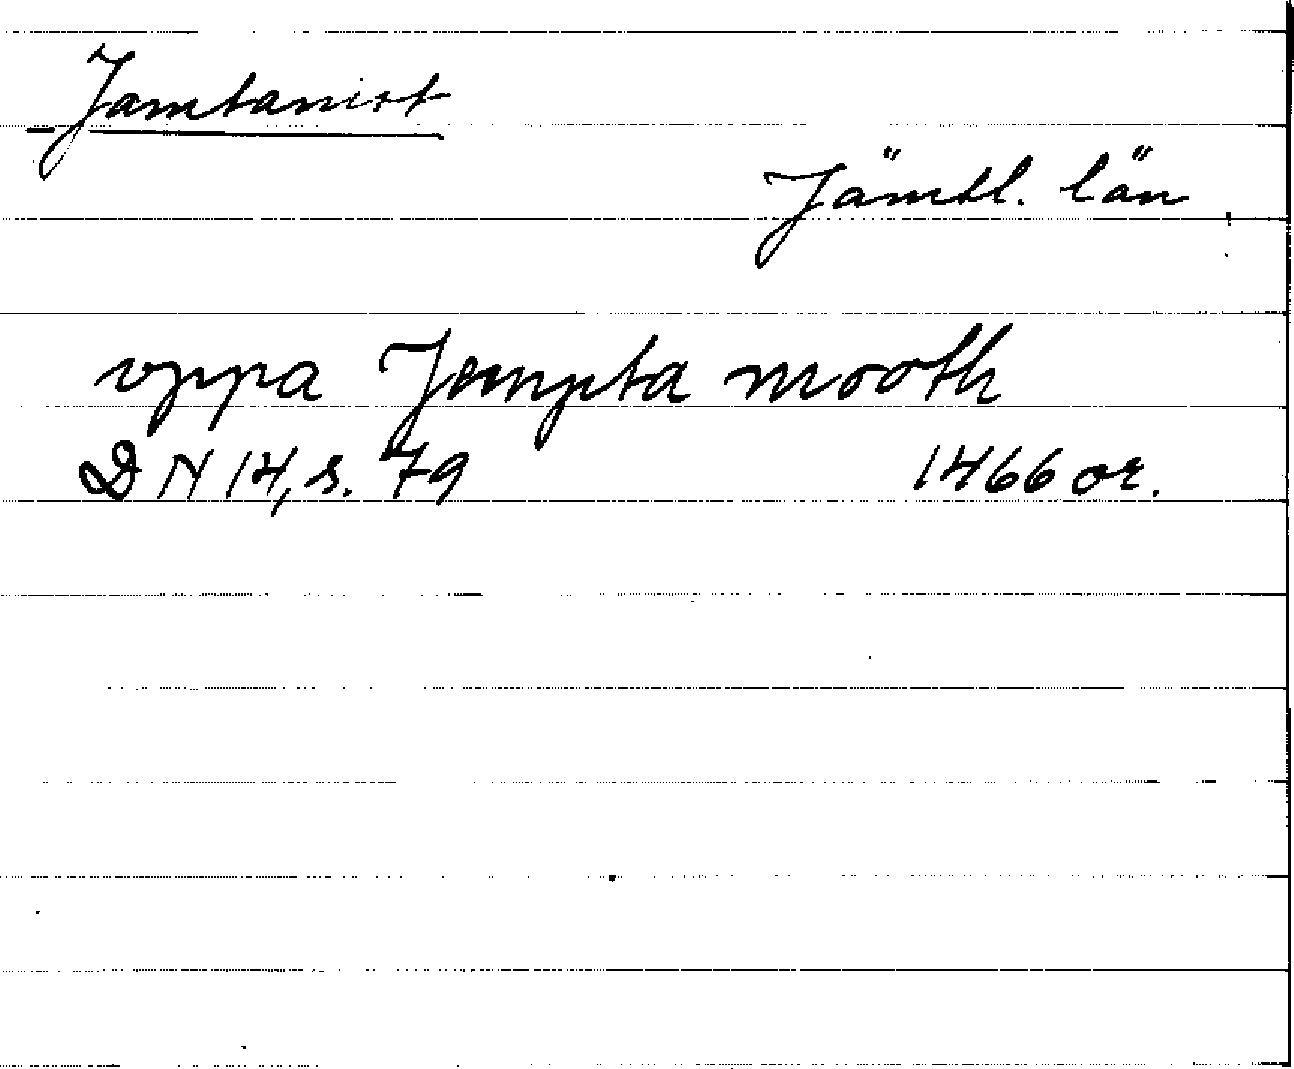 Jamtamot
Jämtl. län
vppa Jempta mooth
DN 14, s. 79 1466 or.